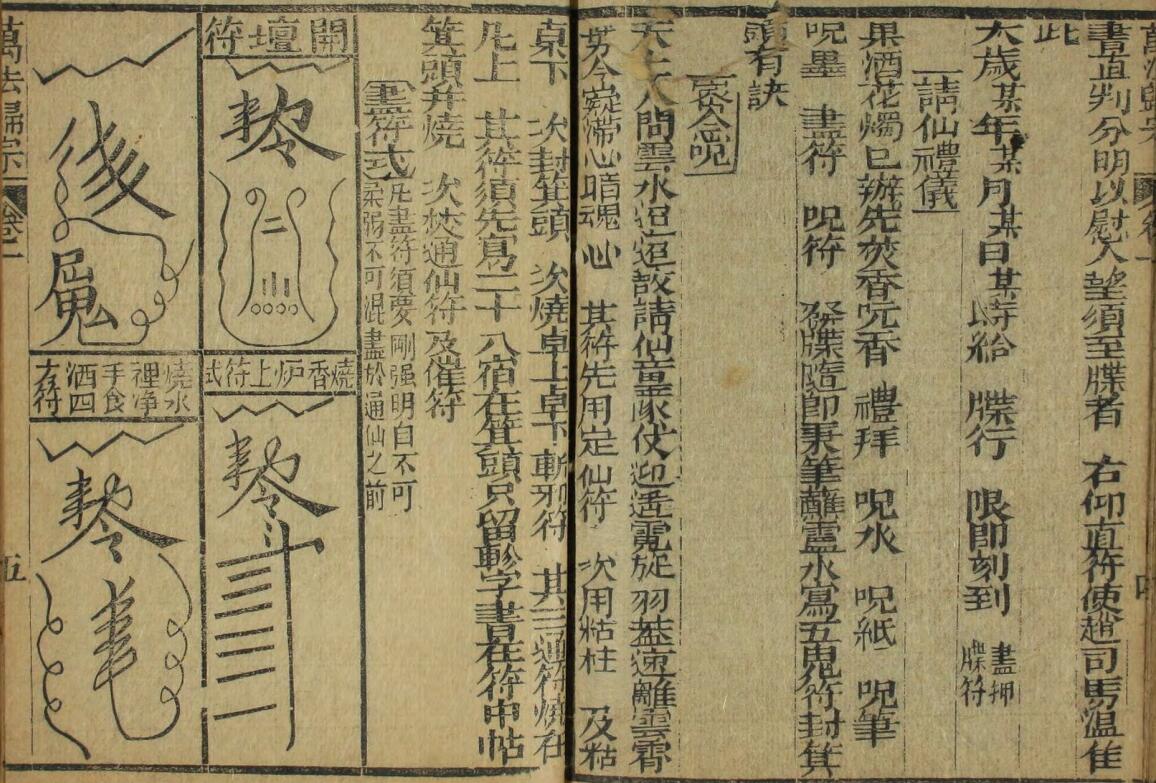 書直判分明以慰人望須至牒者 右仰直符使趙司馬溫隹
此
太歲某年某月某日某時給 牒行 限即刻到 畫押牒符
請仙禮儀
果酒花燭已辦先焚香咒香 禮拜 咒水 咒紙 咒筆
咒墨 畫符 咒符 發牒隨即秉筆蘸靈水寫五鬼符封箕
頭有訣
密念咒
天上人間雲水迢迢故請仙童隊仗迎逶霓旌羽蓋速離雲霄
男今凝滯心暗魂心 其符先用定仙符 次用粘柱 及粘
桌下 次封箕頭 次燒卓上卓下斬邪符 其三通符燒在
凡上 其符須先寫二十八宿在箕頭只留軫字書在符中帖
箕頭并燒 次焚通仙符及催符
畫符式
凡畫符須要剛强明白不可
柔弱不可混畫於通仙之前
開壇符
燒香炉上符式
燒水
裡净
手食
酒四
方符
萬法歸宗
卷二
五